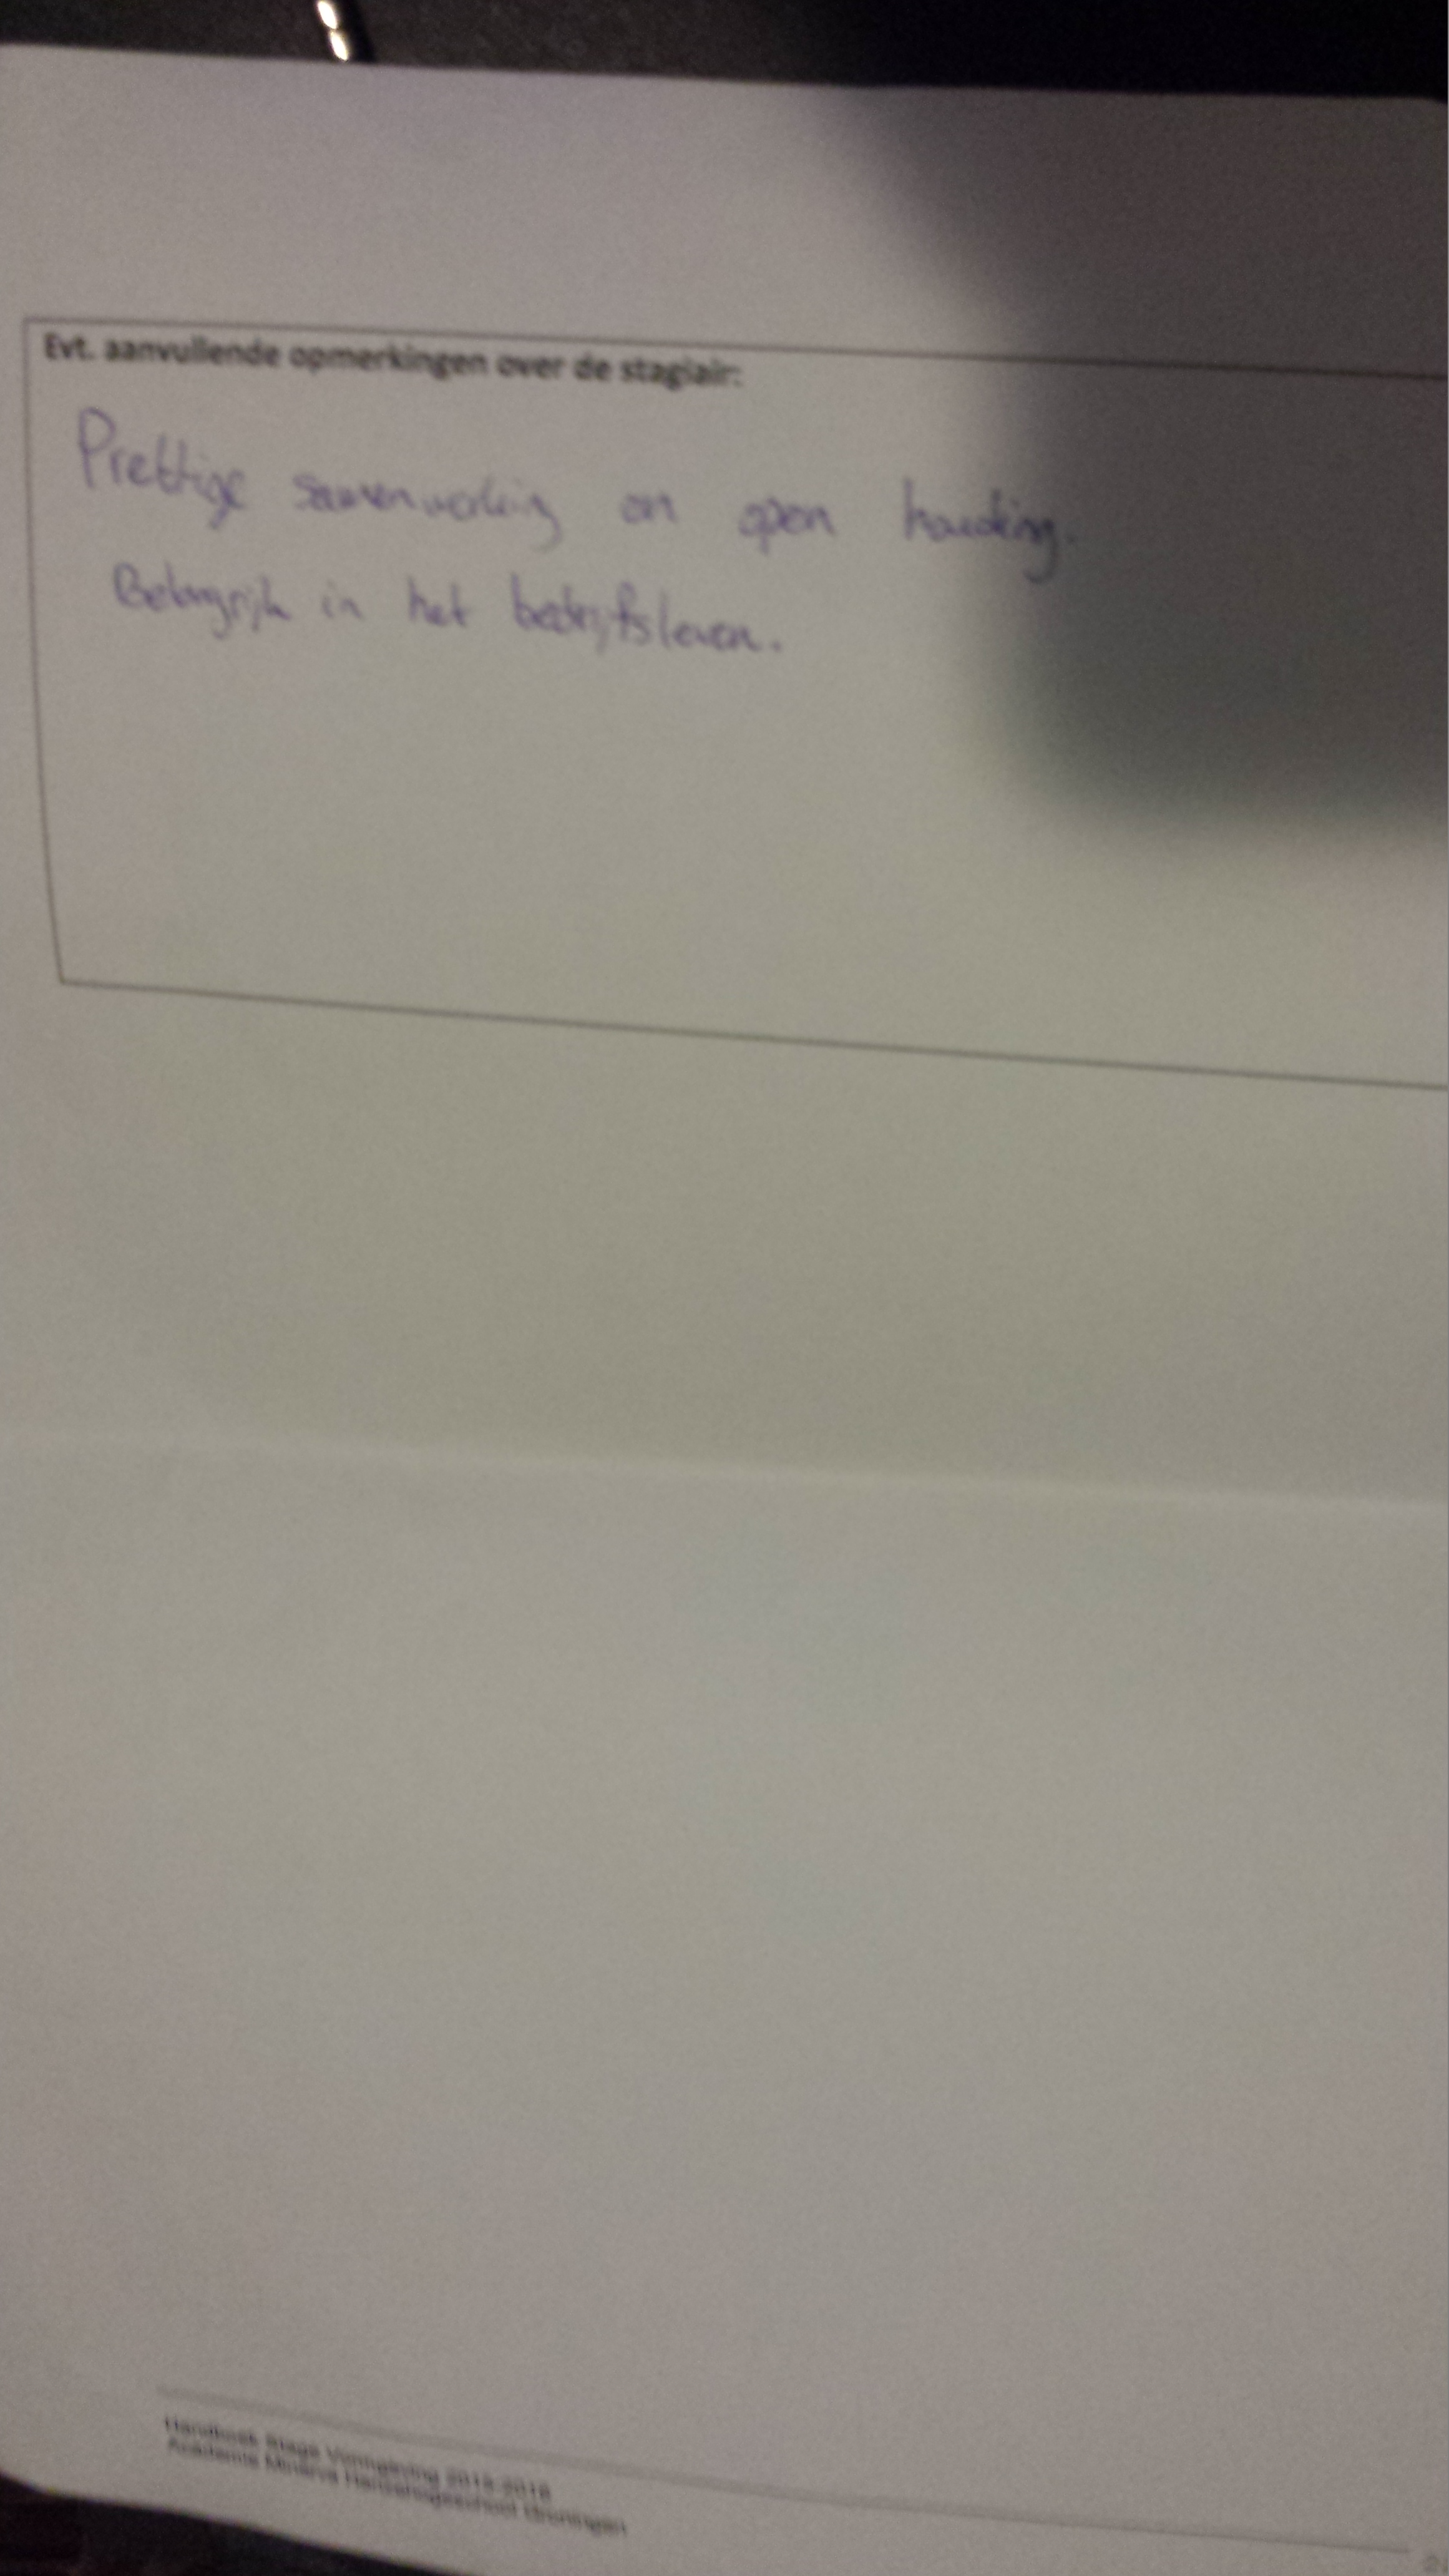 Evt. aanvullende opmerkingen over de stagiair:
Prettige samenwerking en open houding.
Belangrijk in het bedrijfsleven.
Handboek Stage Vormgeving 2015-2016
Academie Minerva Hanzehogeschool Groningen